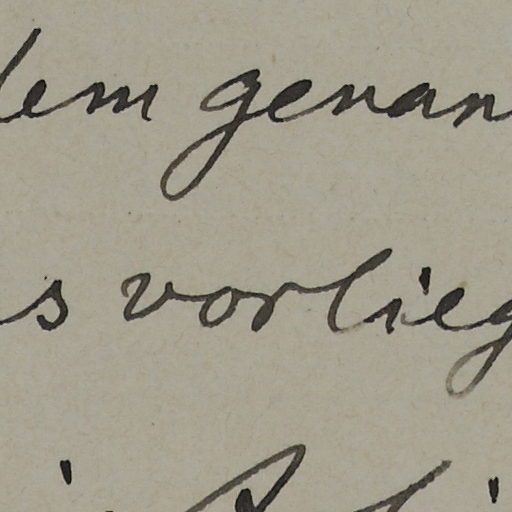 dem genan
s vorlieg